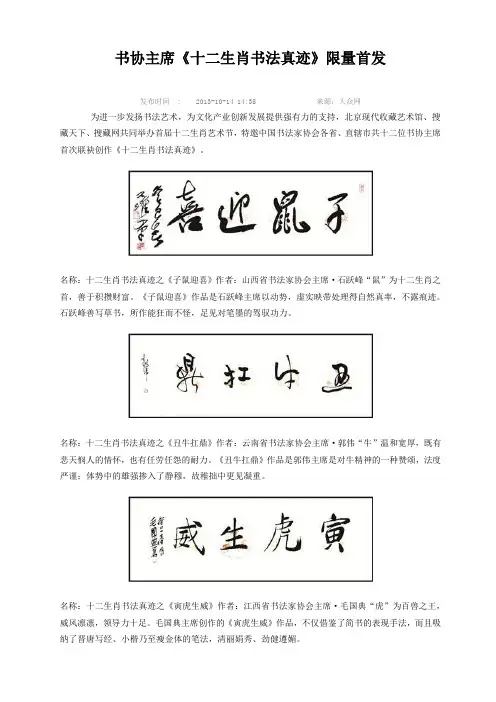 书协主席《十二生肖书法真迹》限量首发
发布时间 : 2013-10-14 14:35 来源:大众网
为进一步发扬书法艺术，为文化产业创新发展提供强有力的支持，北京现代收藏艺术馆、搜
藏天下、搜藏网共同举办首届十二生肖艺术节，特邀中国书法家协会各省、直辖市共十二位书协主席
首次联袂创作《十二生肖书法真迹》。
子鼠迎喜
名称：十二生肖书法真迹之《子鼠迎喜》作者：山西省书法家协会主席·石跃峰“鼠”为十二生肖之
首，善于积攒财富。《子鼠迎喜》作品是石跃峰主席以动势，虚实映带处理得自然真率，不露痕迹。
石跃峰善写草书，所作能狂而不怪，足见对笔墨的驾驭功力。
丑牛扛鼎
名称：十二生肖书法真迹之《丑牛扛鼎》作者：云南省书法家协会主席·郭伟“牛”温和宽厚，既有
悲天悯人的情怀，也有任劳任怨的耐力。《丑牛扛鼎》作品是郭伟主席是对牛精神的一种赞颂，法度
严谨；体势中的雄强掺入了静穆，故稚拙中更见凝重。
寅虎生威
名称：十二生肖书法真迹之《寅虎生威》作者：江西省书法家协会主席·毛国典“虎”为百兽之王，
威风凛凛，领导力十足。毛国典主席创作的《寅虎生威》作品，不仅借鉴了简书的表现手法，而且吸
纳了晋唐写经、小楷乃至瘦金体的笔法，清丽娟秀、劲健遒媚。